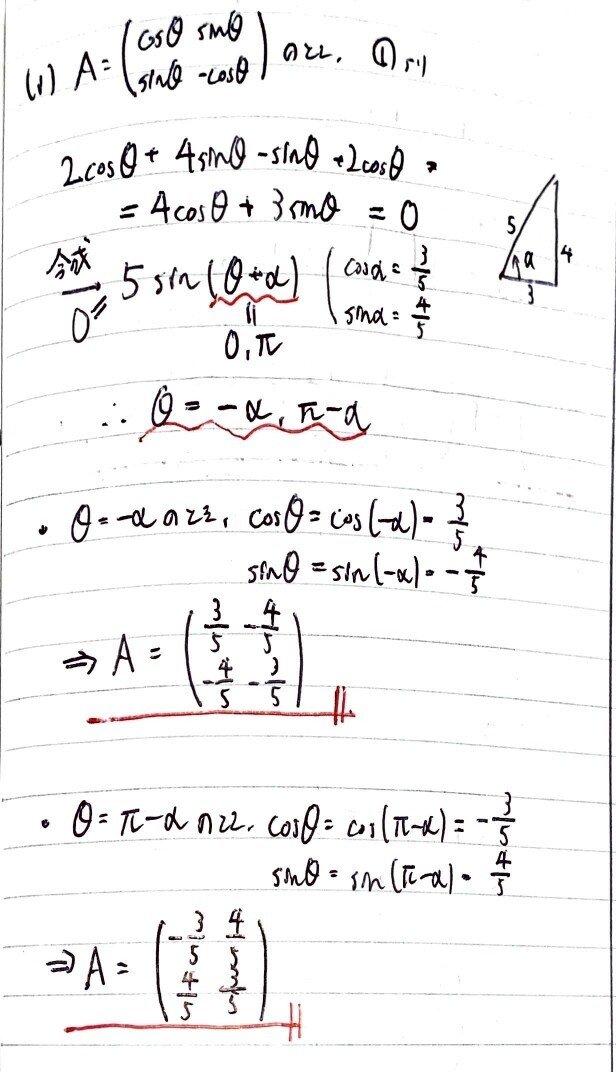 (1) A = (cosθ sinθ
sinθ -cosθ) のとき、①より
2cosθ + 4sinθ - sinθ + 2cosθ =
= 4cosθ + 3sinθ = 0
合成
→ 5 sin(θ+α) (cosα = 3/5
0 sinα = 4/5
=
0, π
5 α 4
3
∴ θ = -α, π-α
・θ = -α のとき、cosθ = cos(-α) = 3/5
sinθ = sin(-α) = -4/5
⇒ A = (3/5 -4/5
-4/5 -3/5)
・θ = π-α のとき、cosθ = cos(π-α) = -3/5
sinθ = sin(π-α) = 4/5
⇒ A = (-3/5 4/5
4/5 3/5)